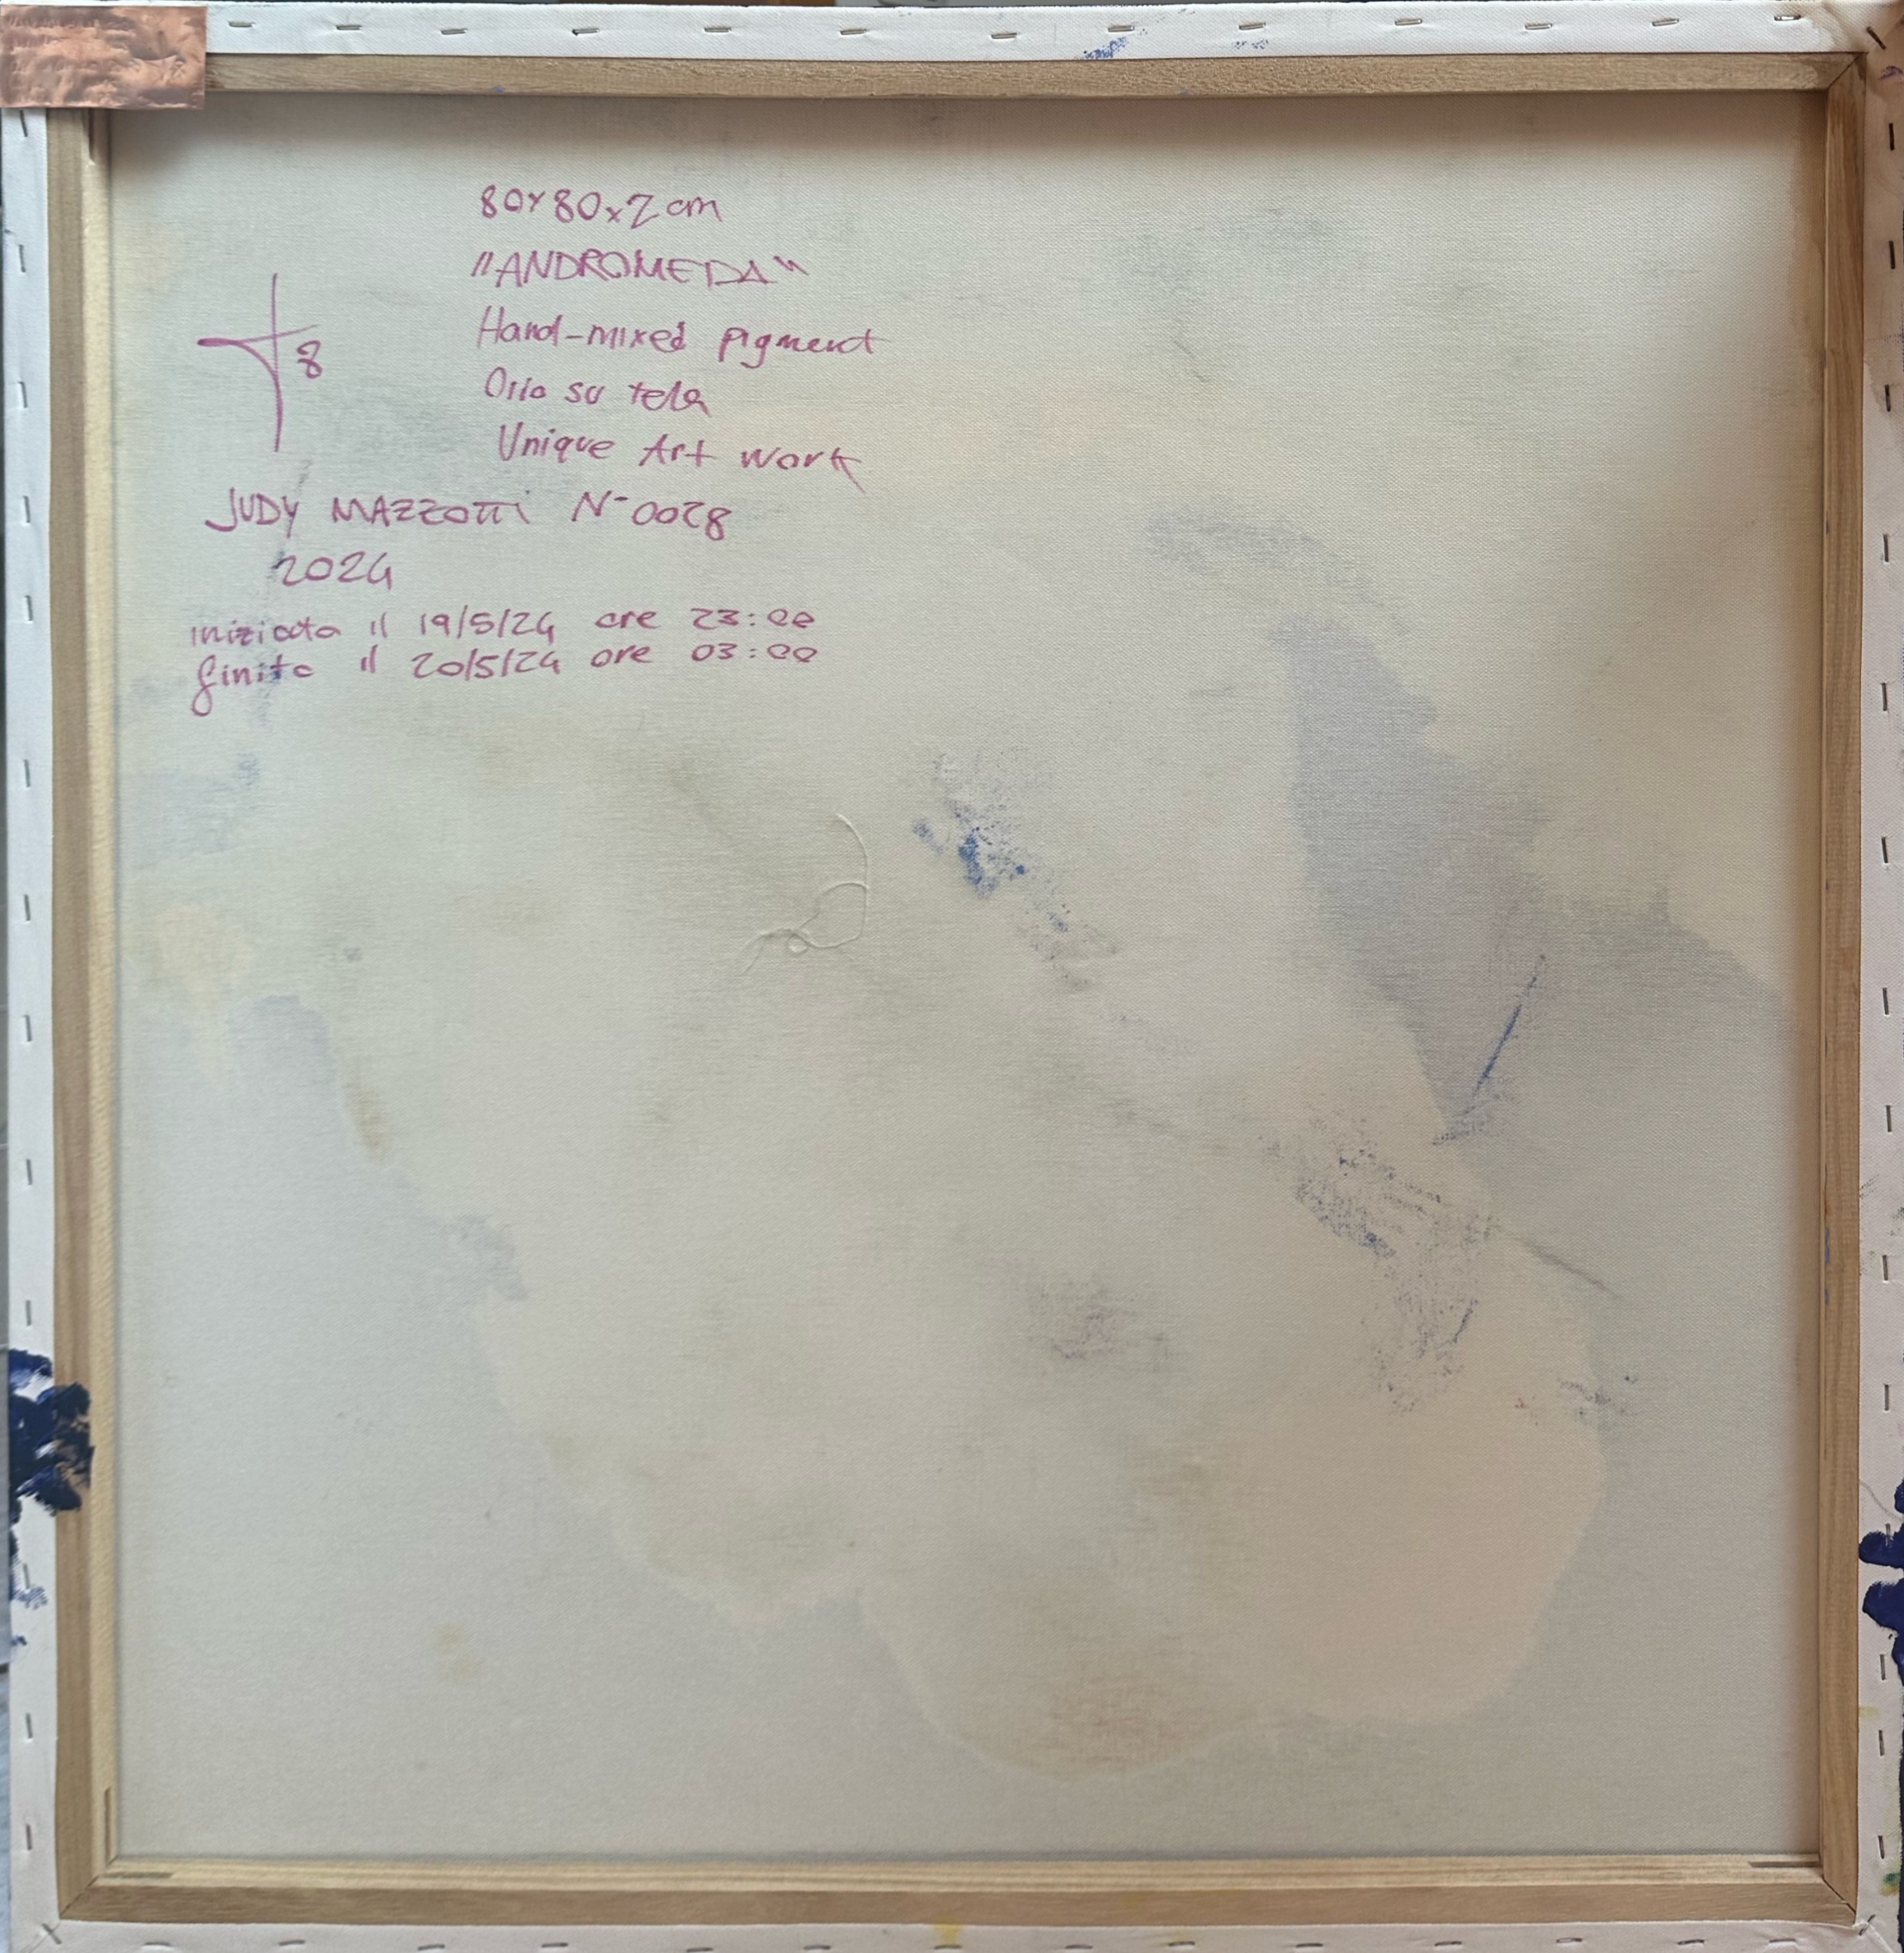 80x80x2 cm
"ANDROMEDA"
Hand-mixed pigment
8
Olio su tela
Unique Art work
JUDY MAZZOTTI N° 0028
2024
iniziata il 19/5/24 ore 23:00
finita il 20/5/24 ore 03:00